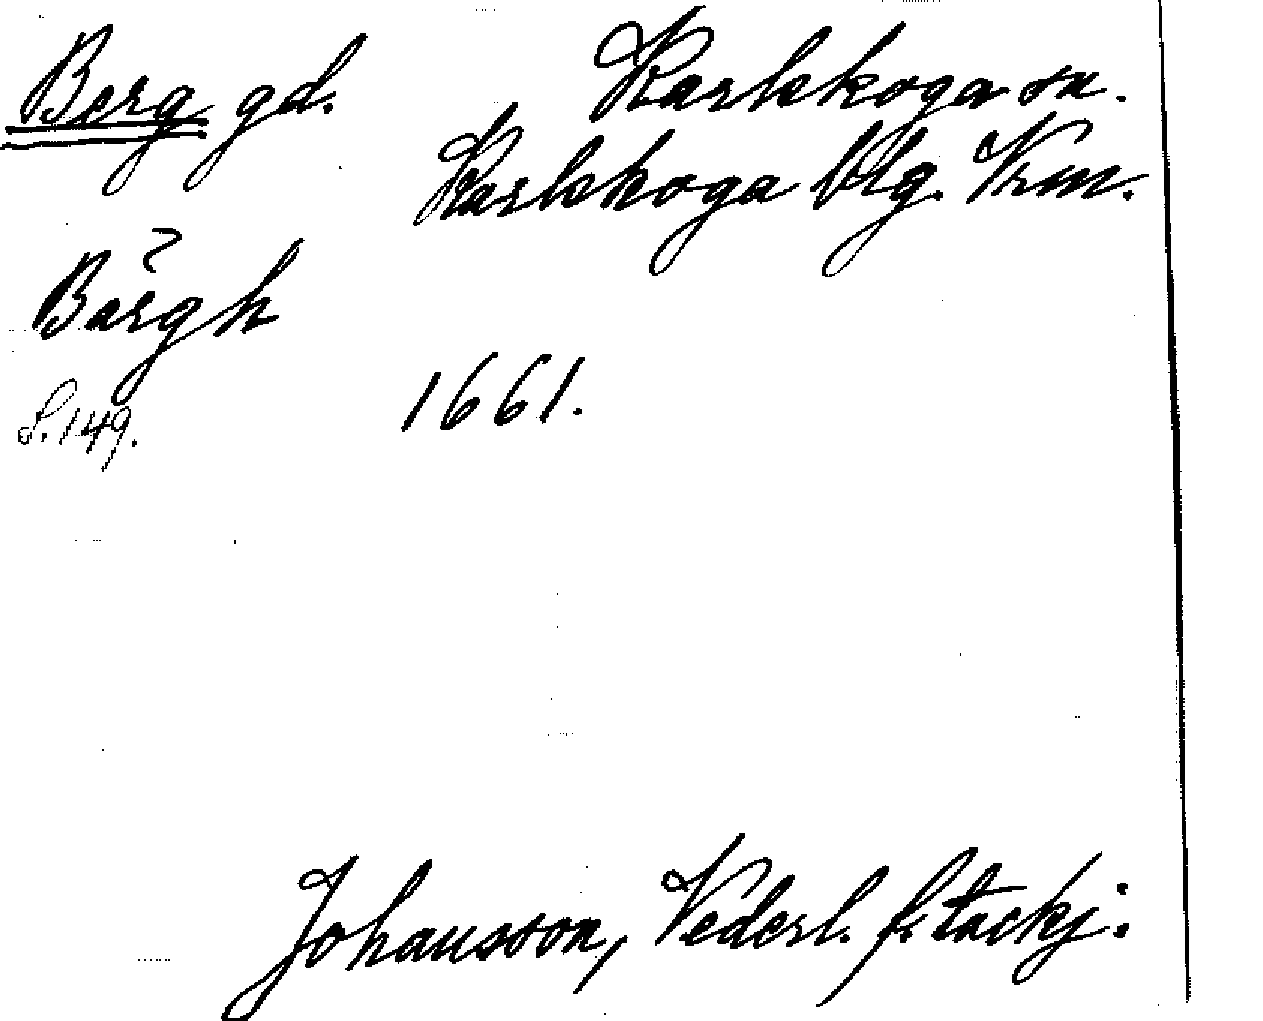 Berg gd. Karlskoga sn.
Karlskoga blg. Vrm.
Bärgh
S. 149. 1661.
Johansson, Vederl. f. tackj: